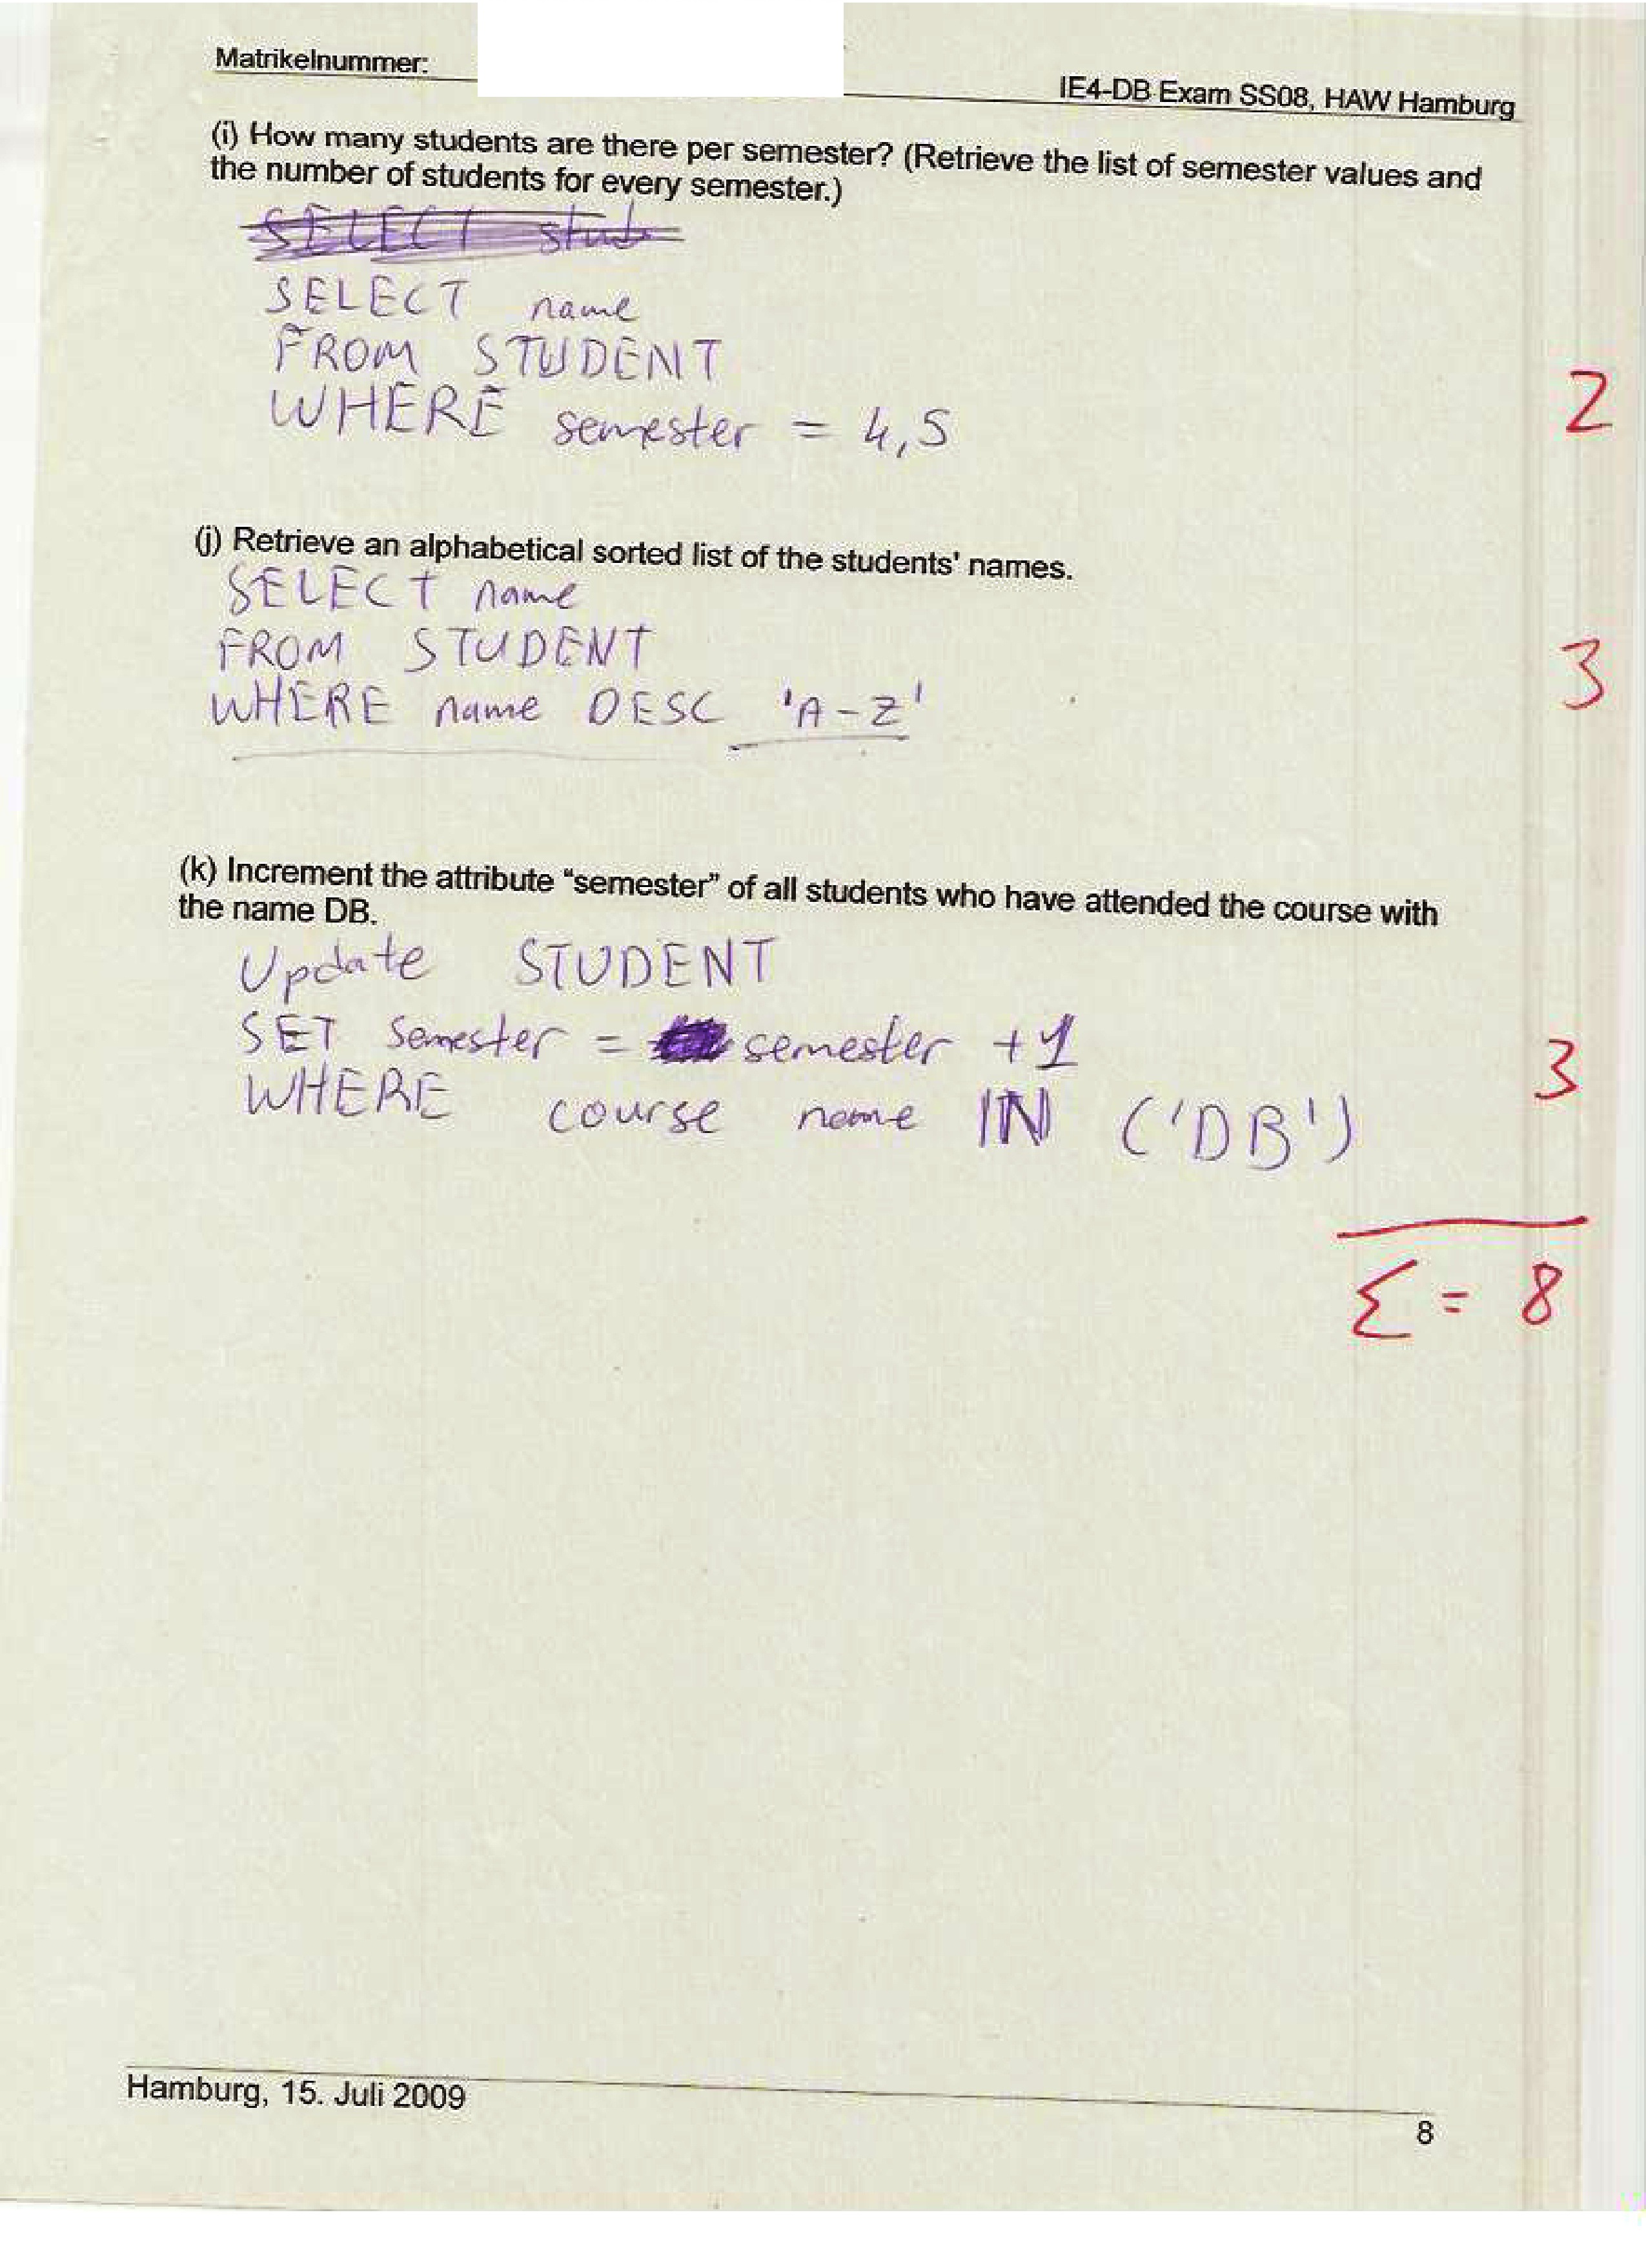 Matrikelnummer:
IE4-DB Exam SS08, HAW Hamburg
(i) How many students are there per semester? (Retrieve the list of semester values and
the number of students for every semester.)
SELECT stude
SELECT name
FROM STUDENT
WHERE semester = 4,5
2
(j) Retrieve an alphabetical sorted list of the students' names.
SELECT name
FROM STUDENT
WHERE name DESC 'A-Z'
3
(k) Increment the attribute “semester” of all students who have attended the course with
the name DB.
Update STUDENT
SET semester = semester +1
WHERE course name IN ('DB')
3
Σ = 8
Hamburg, 15. Juli 2009
8